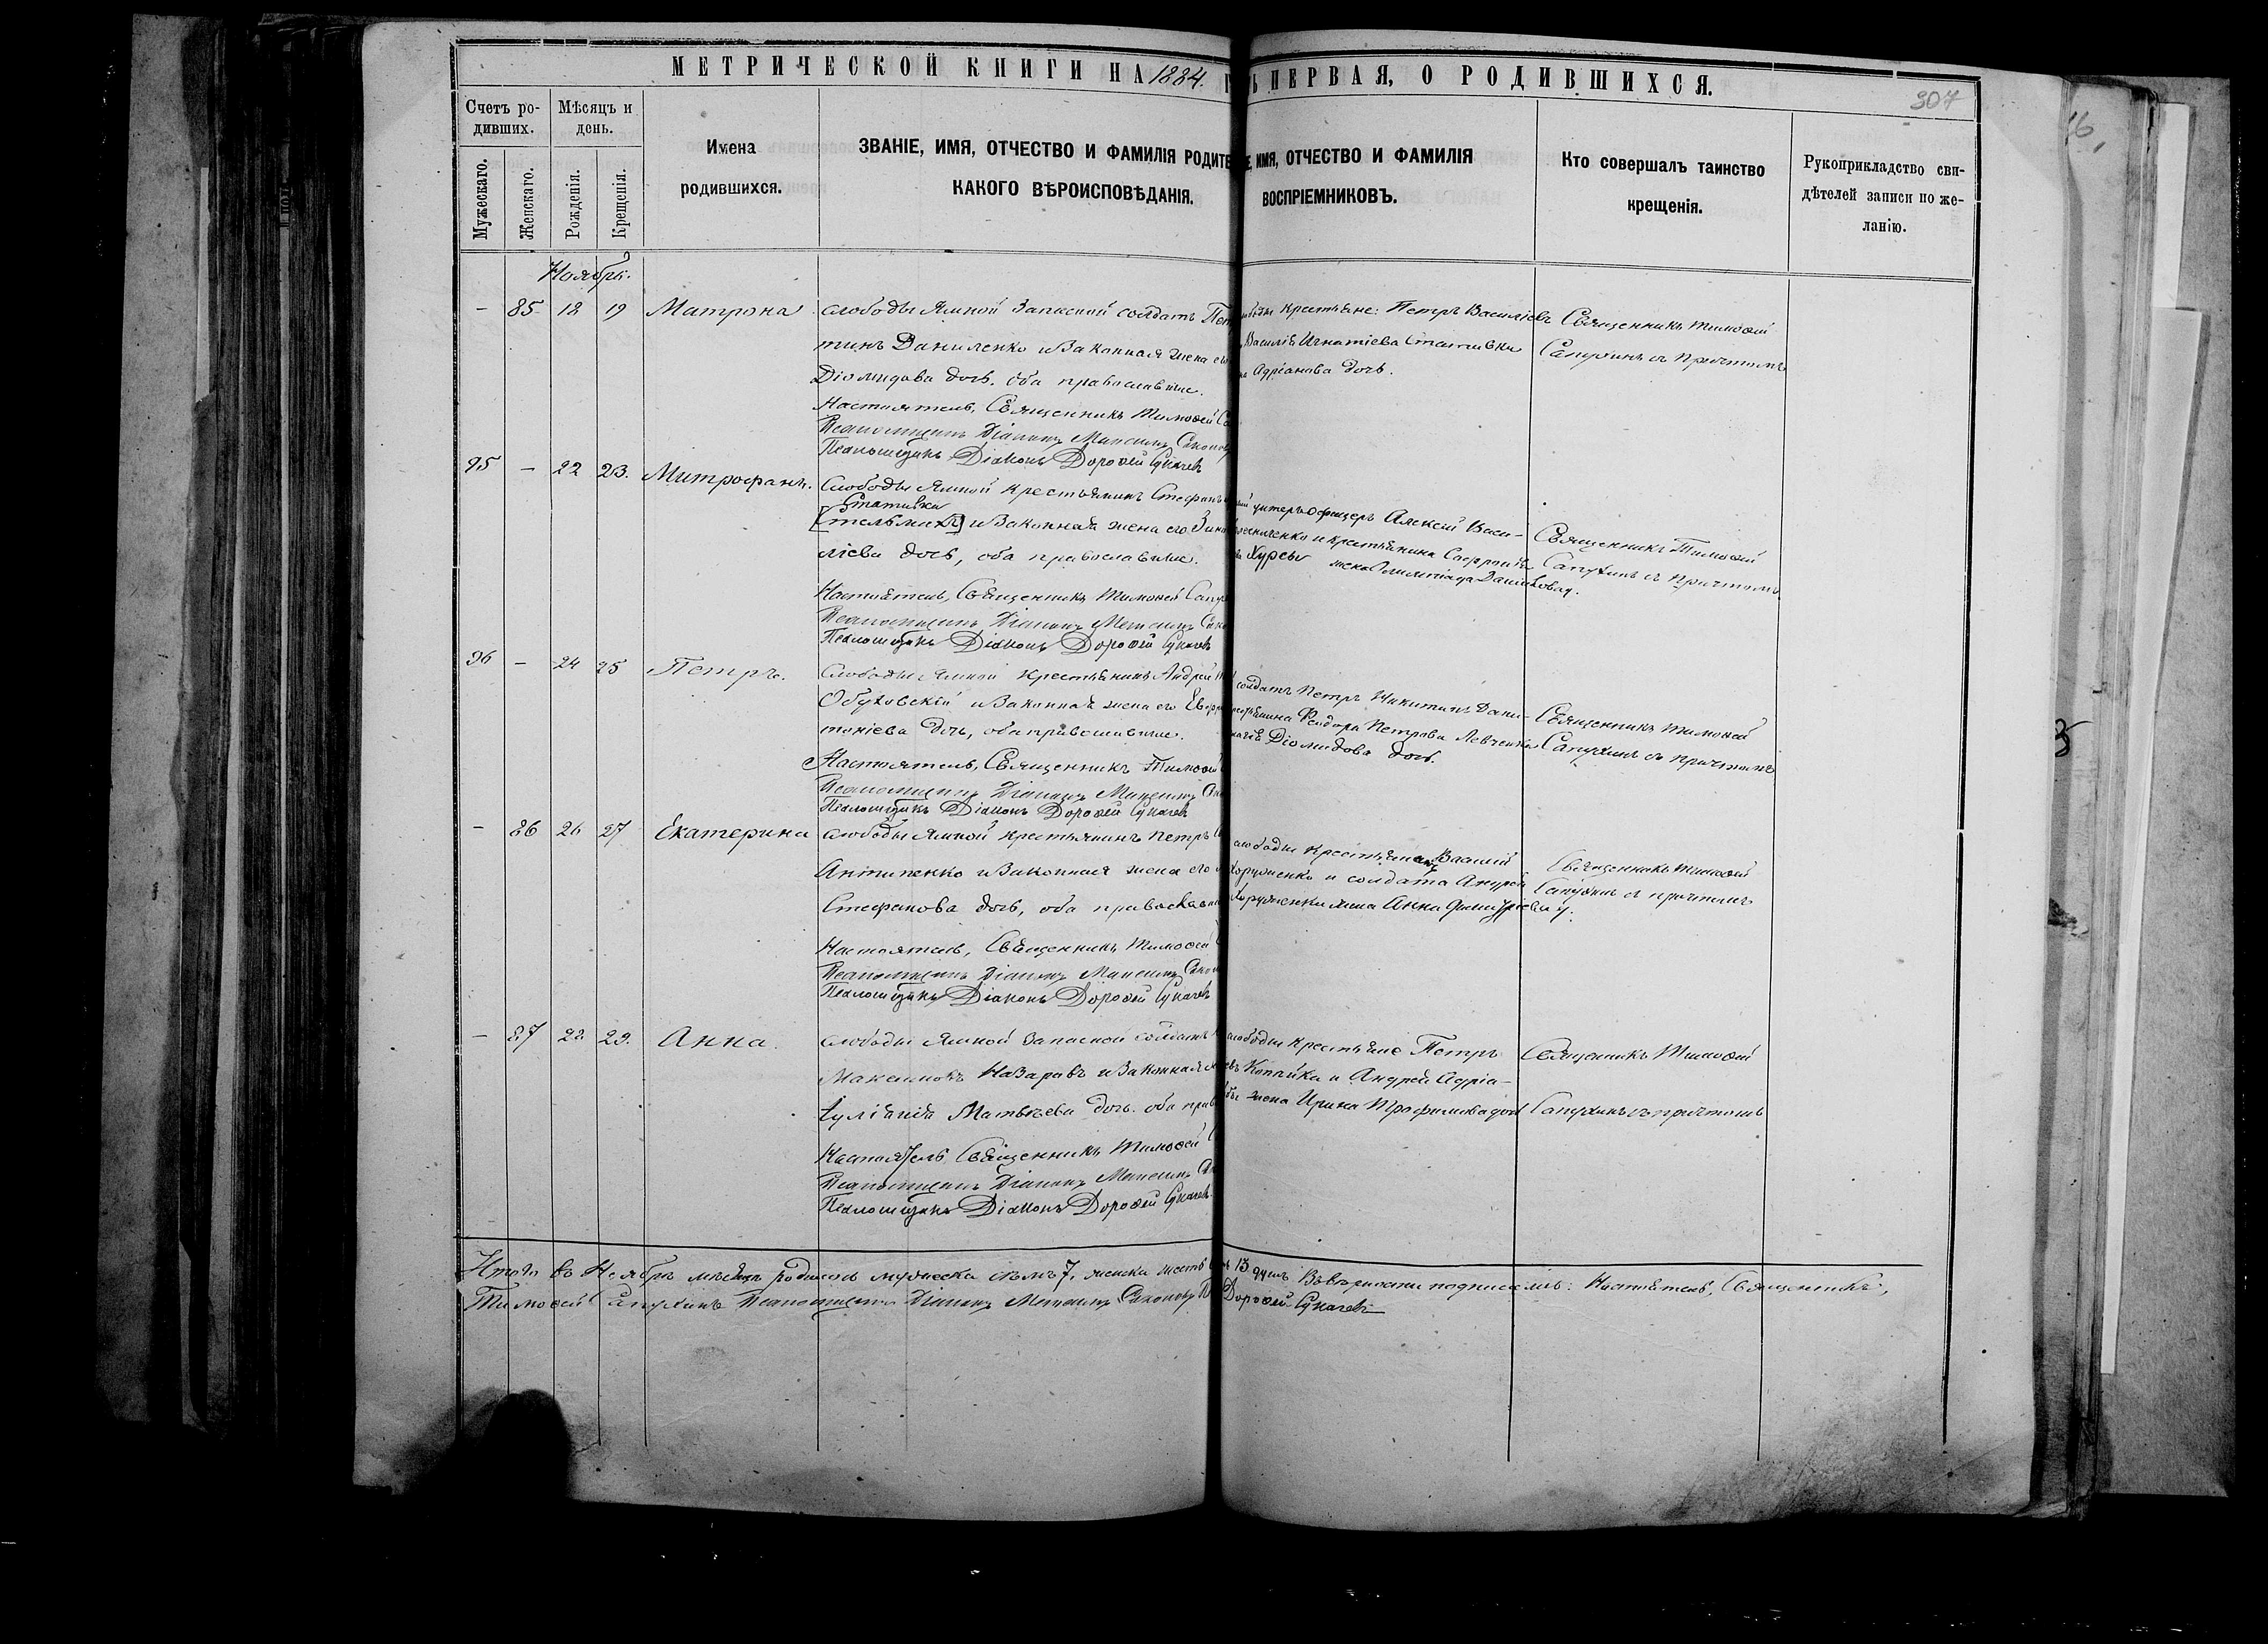 МЕТРИЧЕСКОЙ КНИГИ НА 1884. Ь ПЕРВАЯ, О РОДИВШИХСЯ.
307
Счетъ ро-
дивших.
Мѣсяцъ и
день.
Мужескаго.
Женскаго.
Рожденія.
Крещенія.
Имена
родившихся.
ЗВАНІЕ, ИМЯ, ОТЧЕСТВО И ФАМИЛІЯ РОДИТЕ
КАКОГО ВѢРОИСПОВѢДАНІЯ.
Е, ИМЯ, ОТЧЕСТВО И ФАМИЛІЯ
ВОСПРІЕМНИКОВЪ.
Кто совершалъ таинство
крещенія.
Рукоприкладство сви-
дѣтелей записи по же-
ланію.
Ноябрь.
– 85 18 19 Матрона
слободы Ямной Запасной солдатъ Пет
тинъ Даниленко и Законная жена его
Діомидова дочь. оба православные.
Настоятель, Священникъ Тимоѳей Са
Псаломщикъ Діаконъ
Псаломщикъ Діаконъ Дороѳей Сукачев
крестьяне: Петръ Василіевъ
Василія Игнатіева Стативки
Адріанова дочь.
Священникъ Тимоѳей
Сапухинъ съ причтомъ
95 – 22 23. Митрофанъ.
Слободы Ямной крестьянинъ Стефанъ
Стативка
и Законная жена его Зино
ліева дочь, оба православные.
Настоятель, Священникъ Тимоѳей Сапу
Псаломщикъ Діаконъ
Псаломщикъ Діаконъ Дороѳей Сукачев
унтеръ офицеръ Алексѣй Васи-
и крестьянина
жена Олимпіада Данилова
Священникъ Тимоѳей
Сапухинъ съ причтомъ
96 – 24 25 Петръ.
Слободы Ямной крестьянинъ Андрей
Обуховскій и Законная жена его Евфр
тоніева дочь, оба православные.
Настоятель, Священникъ Тимоѳей
Псаломщикъ Діаконъ
Псаломщикъ Діаконъ Дороѳей Сукачев
солдатъ Петръ Никитинъ Дани-
Ѳеодора Петрова Левченка
Діомидова дочь.
Священникъ Тимоѳей
Сапухинъ съ причтомъ
– 86 26 27 Екатерина
слободы Ямной крестьянинъ Петръ
Антипенко и Законная жена его
Стефанова дочь, оба православн
Настоятель, Священникъ Тимоѳей
Псаломщикъ Діаконъ
Псаломщикъ Діаконъ Дороѳей Сукачев
слободы крестьянинъ Василій
Хоруженко и солдата Андрея
Хоруженка жена Анна
Священникъ Тимоѳей
Сапухинъ съ причтомъ
– 87 28 29. Анна.
слободы Ямной Запасной солдатъ
Максимовъ Назаровъ и Законная
Іуліанія Матвѣева дочь. оба прав
Настоятель Священникъ Тимоѳей
Псаломщикъ Діаконъ
Псаломщикъ Діаконъ Дороѳей Сукачев
слободы крестьяне Петръ
Копѣйка и Андрея Адріа-
жена Ирина Трофимова доч
Священникъ Тимоѳей
Сапухинъ съ причтомъ
Итого въ Ноябрѣ мѣсяцѣ родилось мужеска семь 7, женска шесть 13 душъ Настоятель, Священникъ,
Тимоѳей Сапухинъ Псаломщикъ Діаконъ Дороѳей Сукачев